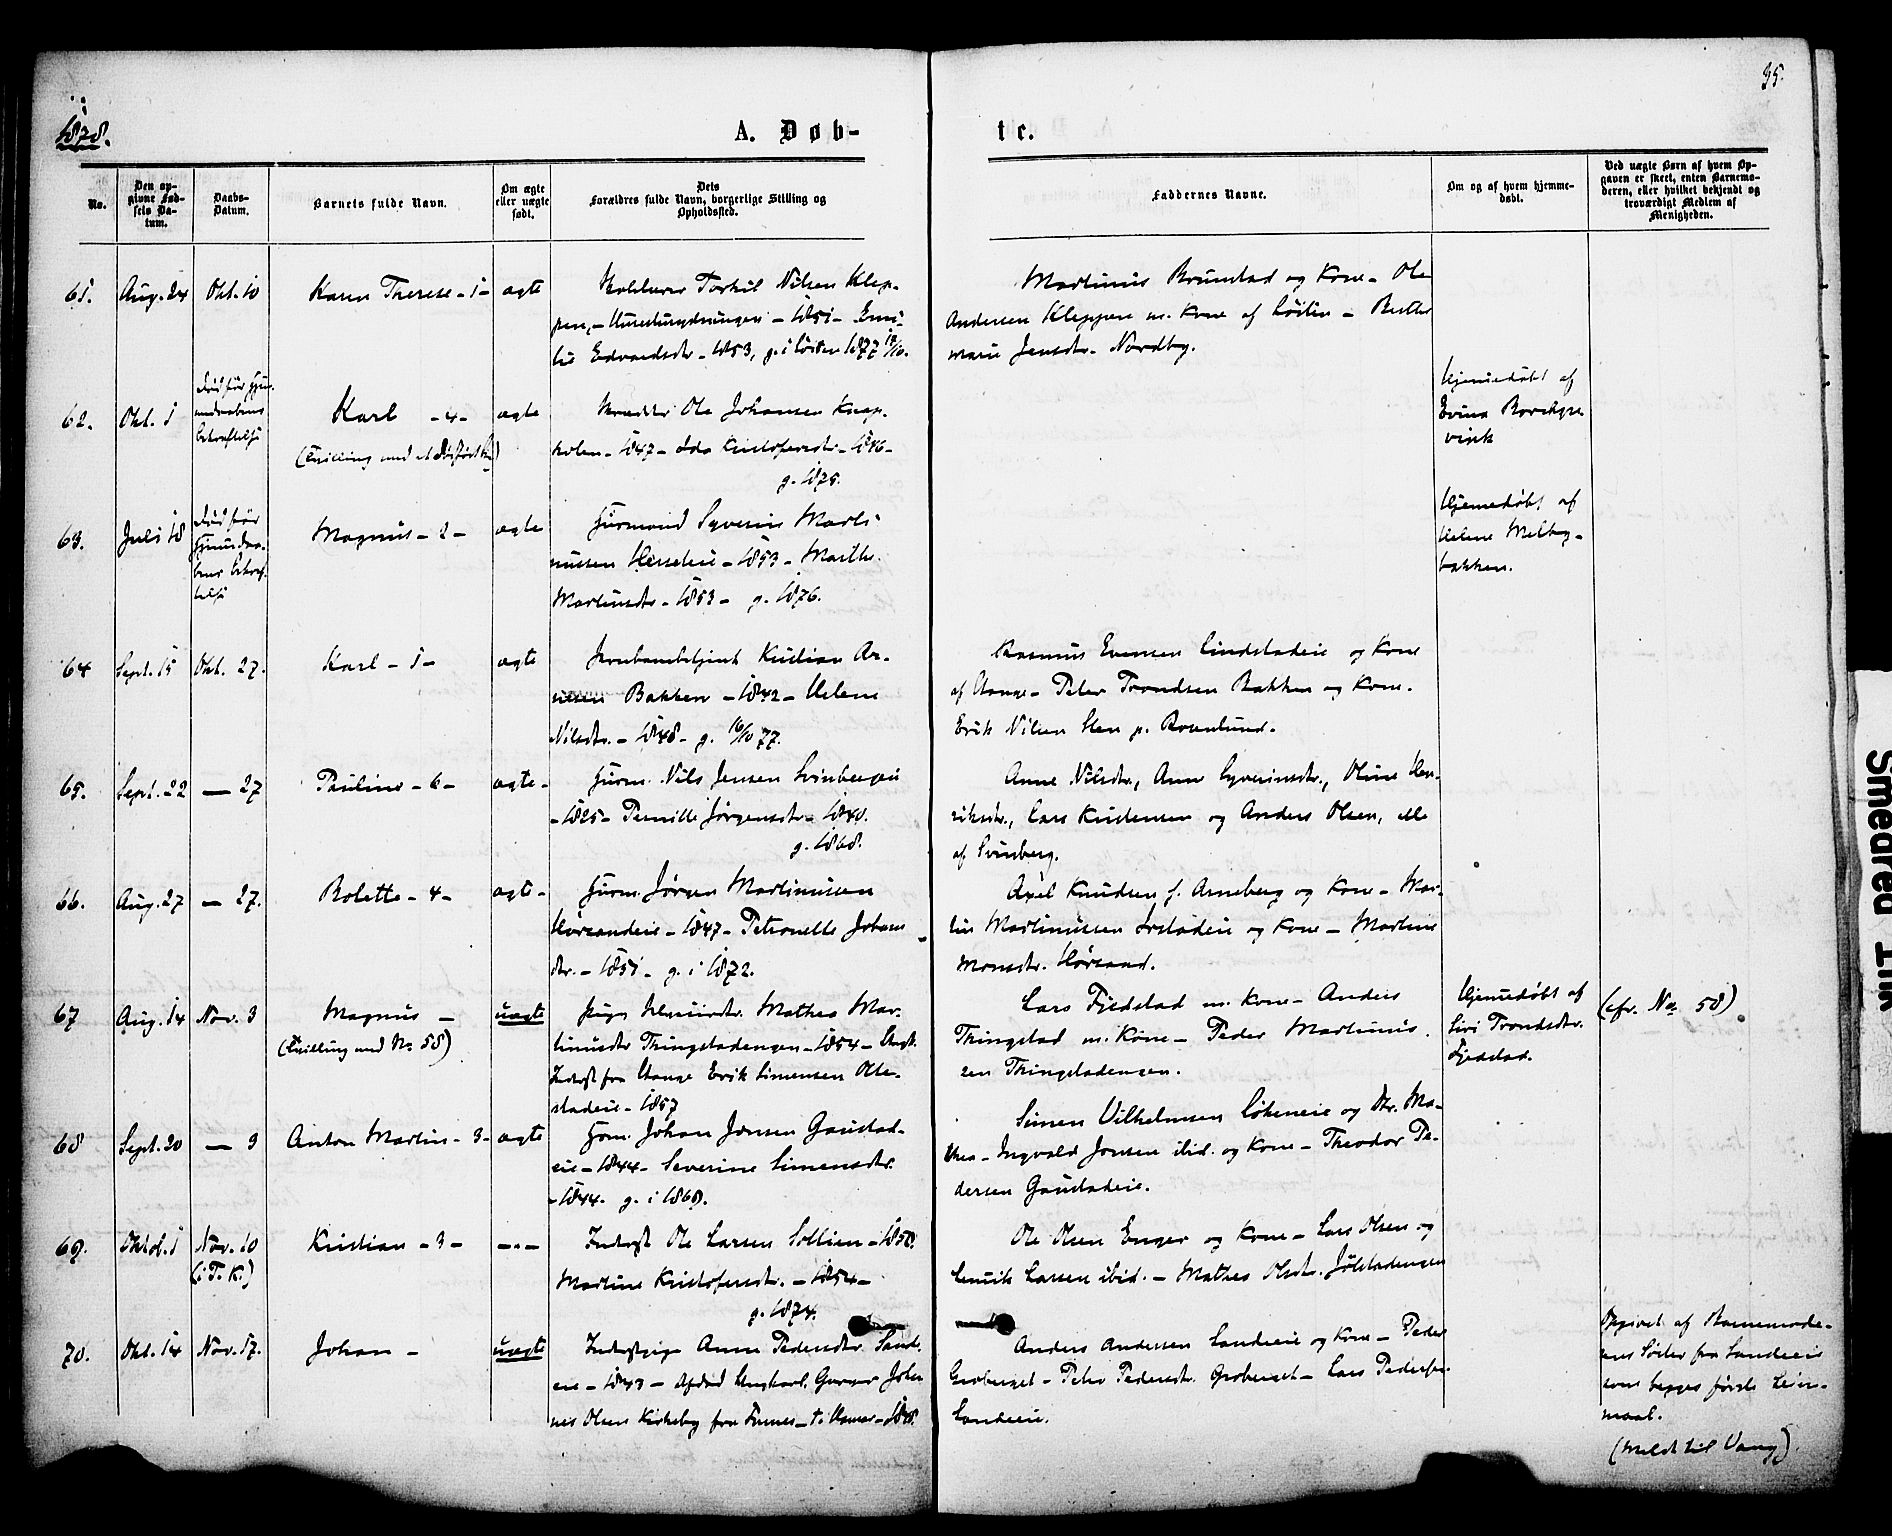 35.
1878.
A. Døb-
te.
No.
Den op-
givne Fød-
sels Da-
tum.
Daabs-
Datum.
Barnets fulde Navn.
Om ægte
eller uægte
født.
Dets
Forældres fulde Navn, borgerlige Stilling og
Opholdssted.
Faddernes Navne.
Om og af hvem hjemme-
døbt.
Ved uægte Børn af hvem Op-
gaven er skeet, enten Barnemo-
deren, eller hvilket bekjendt og
troværdigt Medlem af
Menigheden.
61. Aug. 24 Okt. 10 Karen Therese - 1 - ægte
Torkil Nilsen Klep-
pen, - - 1851 - Emi-
lie Edvardsdtr. - 1853, g. i Løiten 1877 18/10.
Martinus Brunstad og Kone - Ole
Andersen Kleppen m. Kone af Løiten - Berthe
Marie Jensdtr. Nordby.
62. Okt. 1
Død før Gjen-
bekræftelse
Karl - 4 - ægte
(Tvilling med et dødfødt)
Skrædder Ole Johansen Knap-
holen - 1847 - Ida Kristofersdtr. - 1846 -
g. 1875.
Hjemmedøbt af
Evina Borchgre-
vink
63. Juli 18
Død før
bekræf-
telse
Magnus - 2 - ægte
Huusmand Syverin Marti-
nussen - 1853 - Marthe
Martinsdtr. - 1853 - g. 1876.
Hjemmedøbt af
Helene Melby-
bakken.
64 Sept. 15 Okt. 27. Karl - 1 - ægte
Jernbanebetjent Kristian Ar-
nesen Bakken - 1842 - Helene
Nilsdtr. - 1848 - g. 16/10 77.
Rasmus Evensen Lindstadeie og Kone
af Stange - Peter Trondsen Bakken og Kone.
Erik Nilsen Sten p. Rosenlund.
65. Sept. 22 - 27 Pauline - 6 - ægte -
Huusm. Nils Jensen Svinbergeie
- 1825 - Pernille Jørgensdtr. - 1840.
g. 1868.
Anne Nilsdtr., Anne Syverinsdtr., Oline Hen-
riksdtr., Lars Kristensen og Anders Olsen, alle
af Svinberg.
66. Aug. 27 - 27. Bolette - 4 - ægte -
Huusm. Jørgen Martinussen
Hørsandeie - 1847 - Petronelle Johans
dtr. - 1851 - g. i 1872.
Axel Knudsen f. Arneberg og Kone - Mar-
tin Martinussen og Kone - Martine
Monsdtr. Hørsand.
67 Aug. 14 Nov. 3 Magnus - uægte
(Tvilling med No 58)
Pige Mathea Mar-
tinusdtr Thingstadengen - 1854 - Ungk.
Inderst fra Stange Erik Simensen Otte-
stadeie - 1857
Lars Fjedstad m. Kone - Anders
Thingstad m. Kone - Peder Martinus-
sen Thingstadengen.
Hjemmedøbt af
Siri Trondsdtr.
Fjedstad.
(cfr. No 58)
68 Sept. 20 - 3 Anton Martin - 3 - ægte
Huusm. Johan Jensen Gaustad-
eie - 1844 - Severine Simensdtr.
- 1844. g. i 1869.
Simen Vilhelmsen og Dtr. Ma-
thea - Ingvald Jensen ibid. og Kone - Theodor Pe-
dersen Gaustadeie.
69. Oktob. 1 Nov. 10 Kristian - 3 - - " -
(i T. K.)
Inderst Ole Larsen Sollien - 1850.
Martine Kristofersdtr. - 1854 -
g. 1874.
Ole Olsen Enger og Kone - Lars Olsen og
Henrik Larsen ibid. - Mathea Olsdtr. Jølstadengen
70. Okt. 14 Nov. 17. Johan - uægte
Inderstpige Anne Pedersdtr. Sand-
eie - 1843 - Afskd. Ungkarl Johan-
nes Olsen Kirkeby fra Furnes - t. Hamar -
Anders Andersen Sandeie og Kone - Peder
Groberget - Petra Pedersdtr. Groberget - Lars Pedersen
Sandeie.
Opgivet af Barnemode-
rens Søster fra Sandeie
som begges første Leier-
maal.
(Meldt til Vang).
Smeared Ink